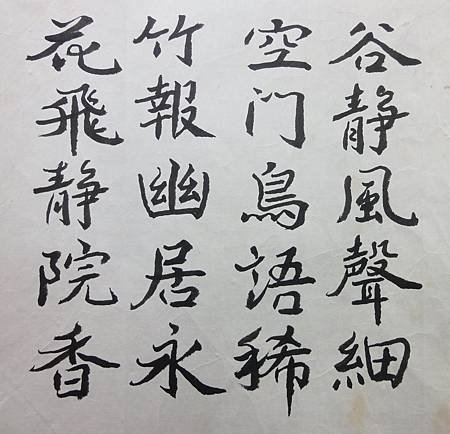 谷靜風聲細
空门鳥語稀
竹報幽居永
花飛静院香